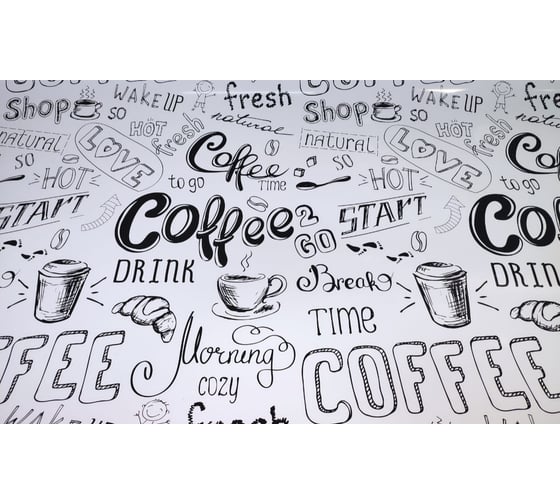 COFFEE
WAKE UP fresh
Shop SO
natural
WAKE UP fresh
Shop SO
natural
natural
LOVE
HOT
fresh
natural
LOVE
HOT
fresh
SO
HOT
Coffee
TIME
to go
SO
HOT
to go
START
Coffee 2 GO
START
DRINK
Break
TIME
DRIN
FFEE
Morning
cozy
COFFEE
WAKE UP
fresh